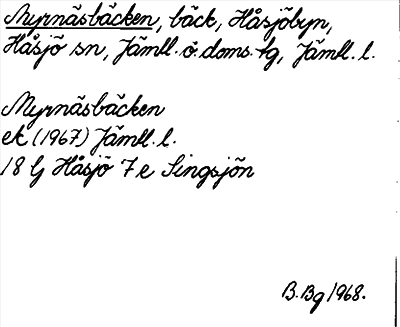 Myrnäsbäcken, bäck, Håsjöbyn,
Håsjö sn, Jämtl. ö. doms. tg, Jämtl. l.
Myrnäsbäcken
ek (1967) Jämtl. l.
18 G Håsjö 7 e Singsjön
B. Bg 1968.